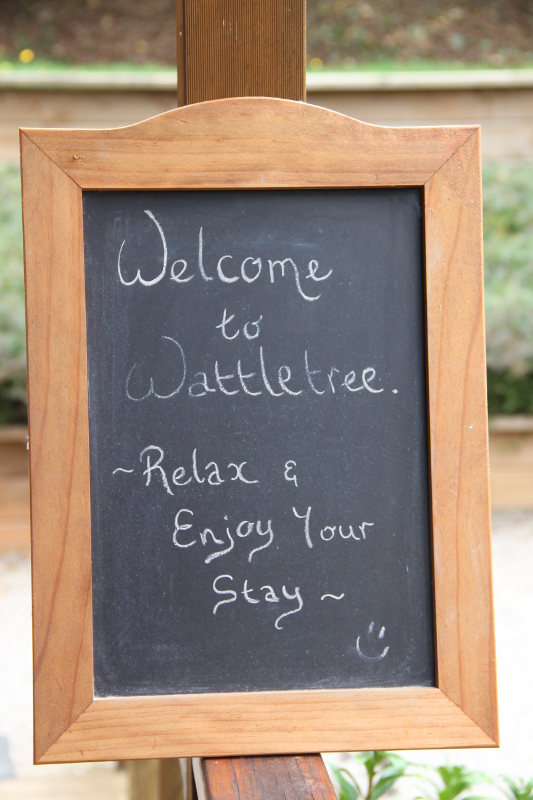 Welcome
to
Wattletree.
~Relax &
Enjoy Your
Stay ~